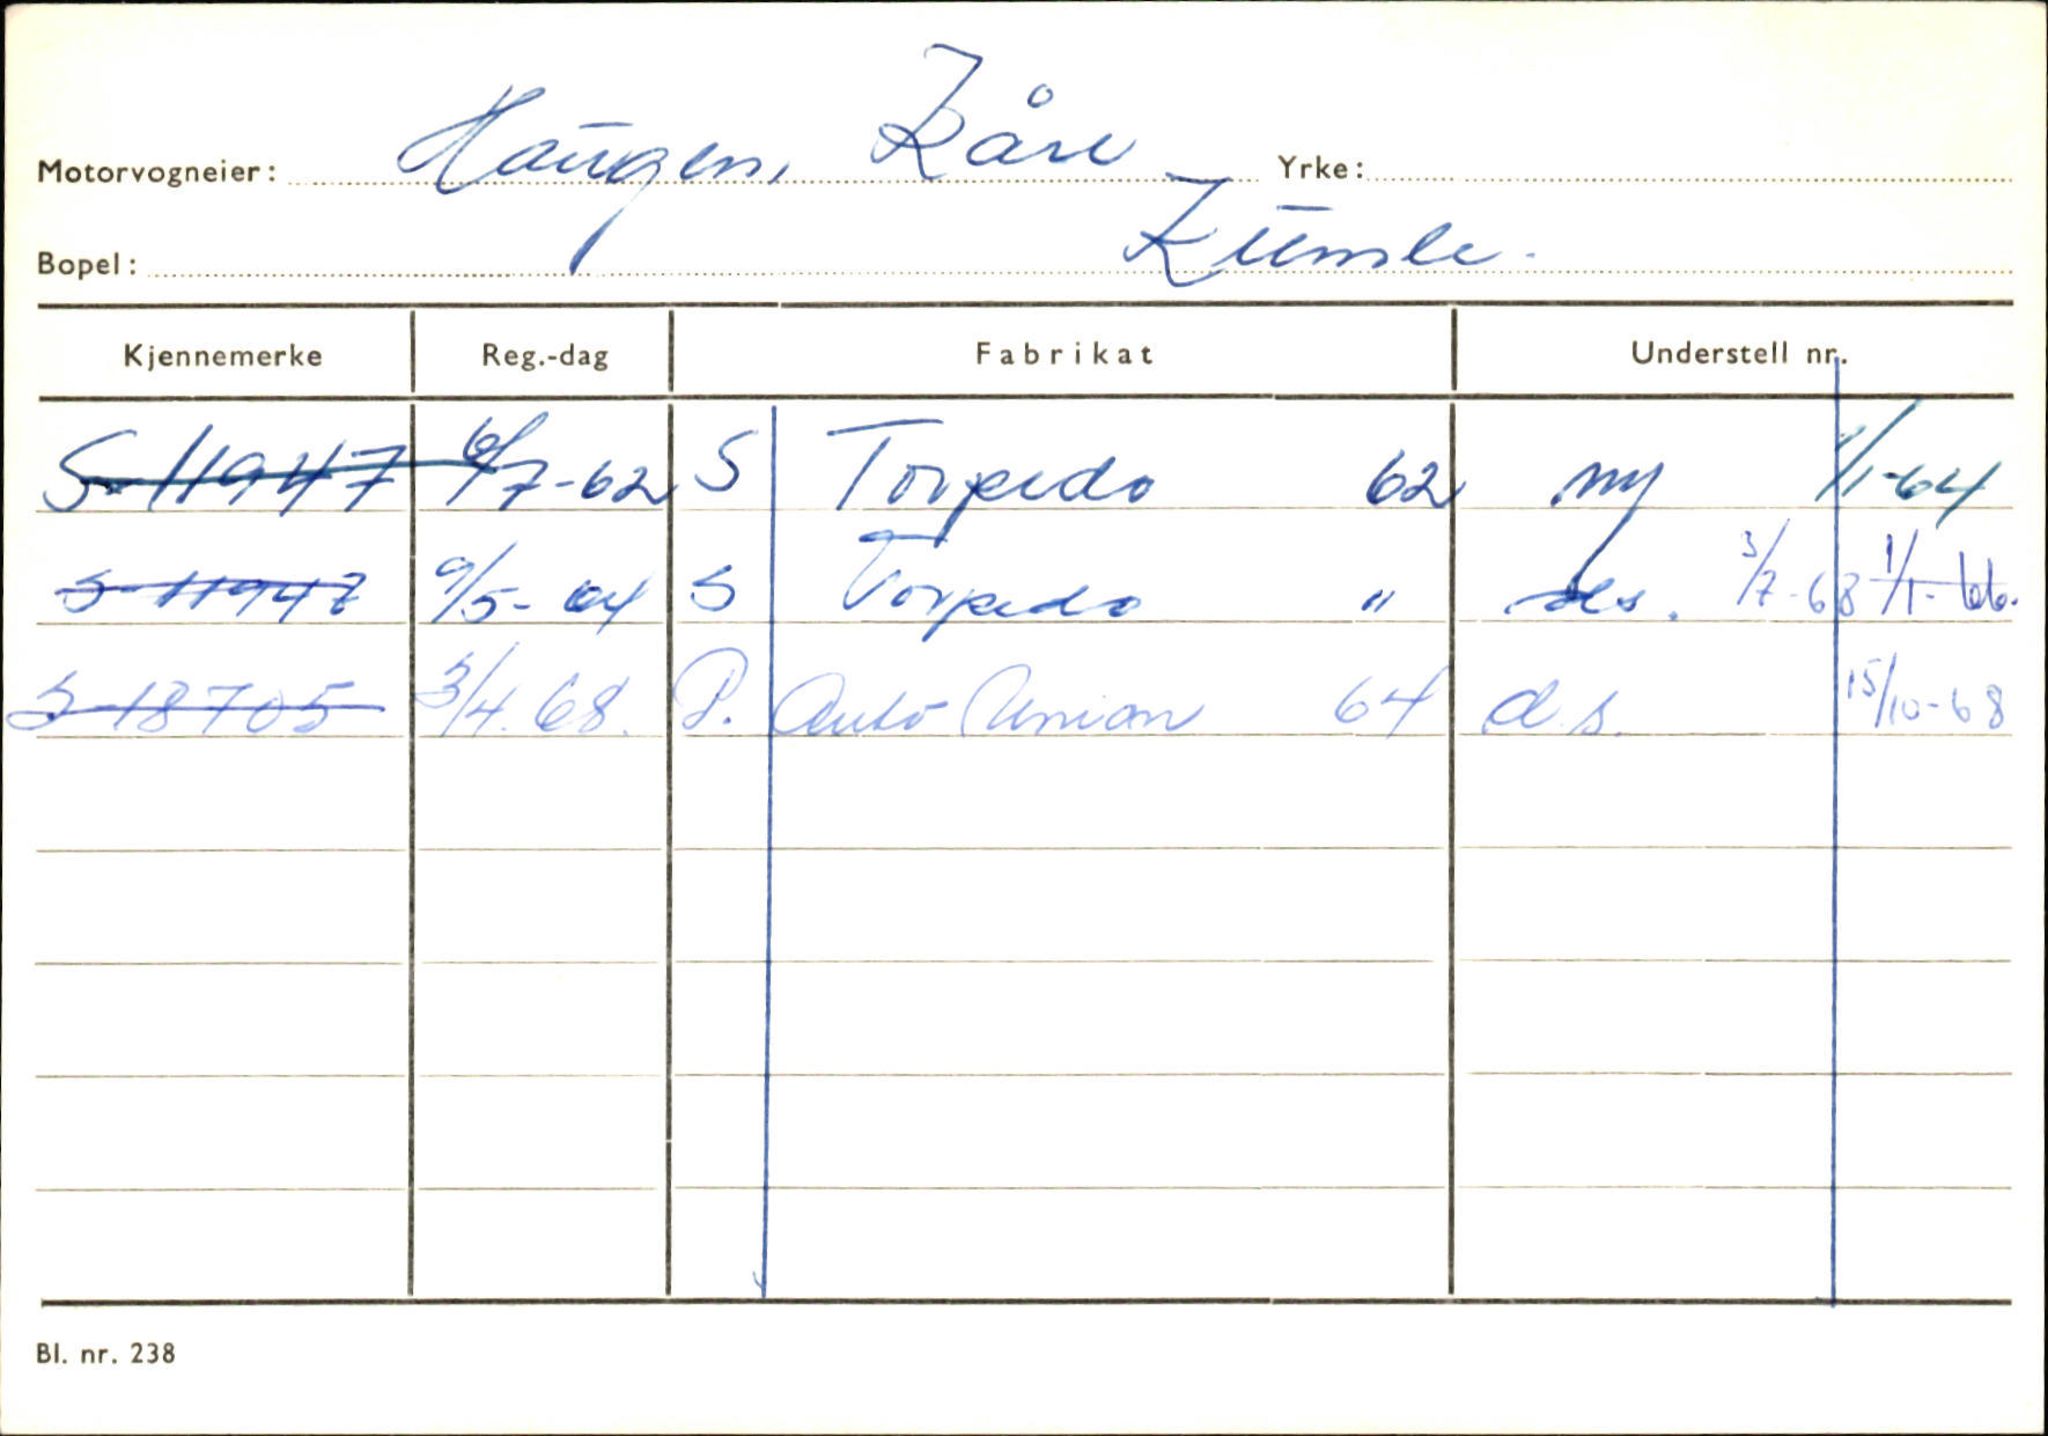 Motorvogneier: Haugen, Kåre Yrke:
Bopel: Kumle.
Kjennemerke Reg.-dag Fabrikat Understell nr.
S-11947 6/7-62 S Torpedo 62 ny 1/1-64
S-11947 9/5-64 S Torpedo " ds. 3/7-68 1/1-66.
S-18705 3/4.68. P. Auto Union 64 d.s. 15/10-68
Bl. nr. 238